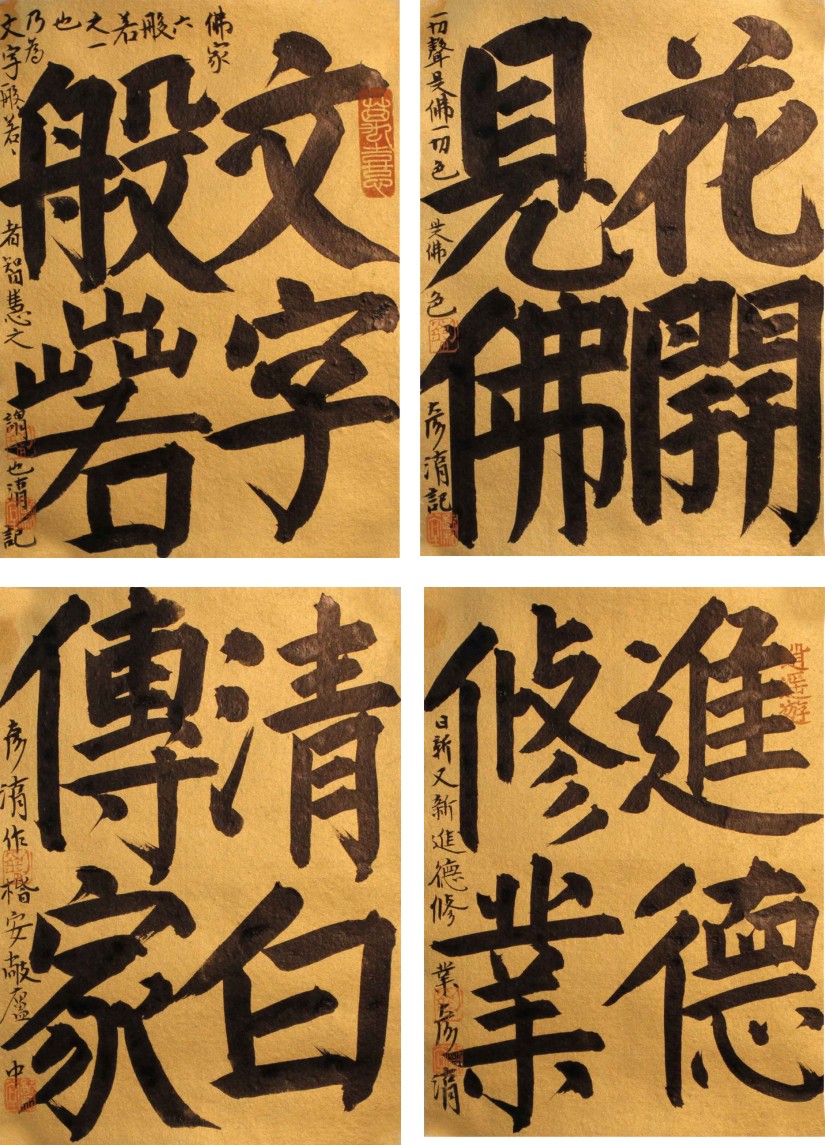 文字
般若
佛家
六
般
若
之一
也
乃為
文字般若、者智慧之謂也淯記
花開
見佛
一切聲是佛一切色是佛色彥淯記
清白
傳家
彥淯作楷安敲廬中
逍遙遊
進德
修業
日新又新進德修業彥淯